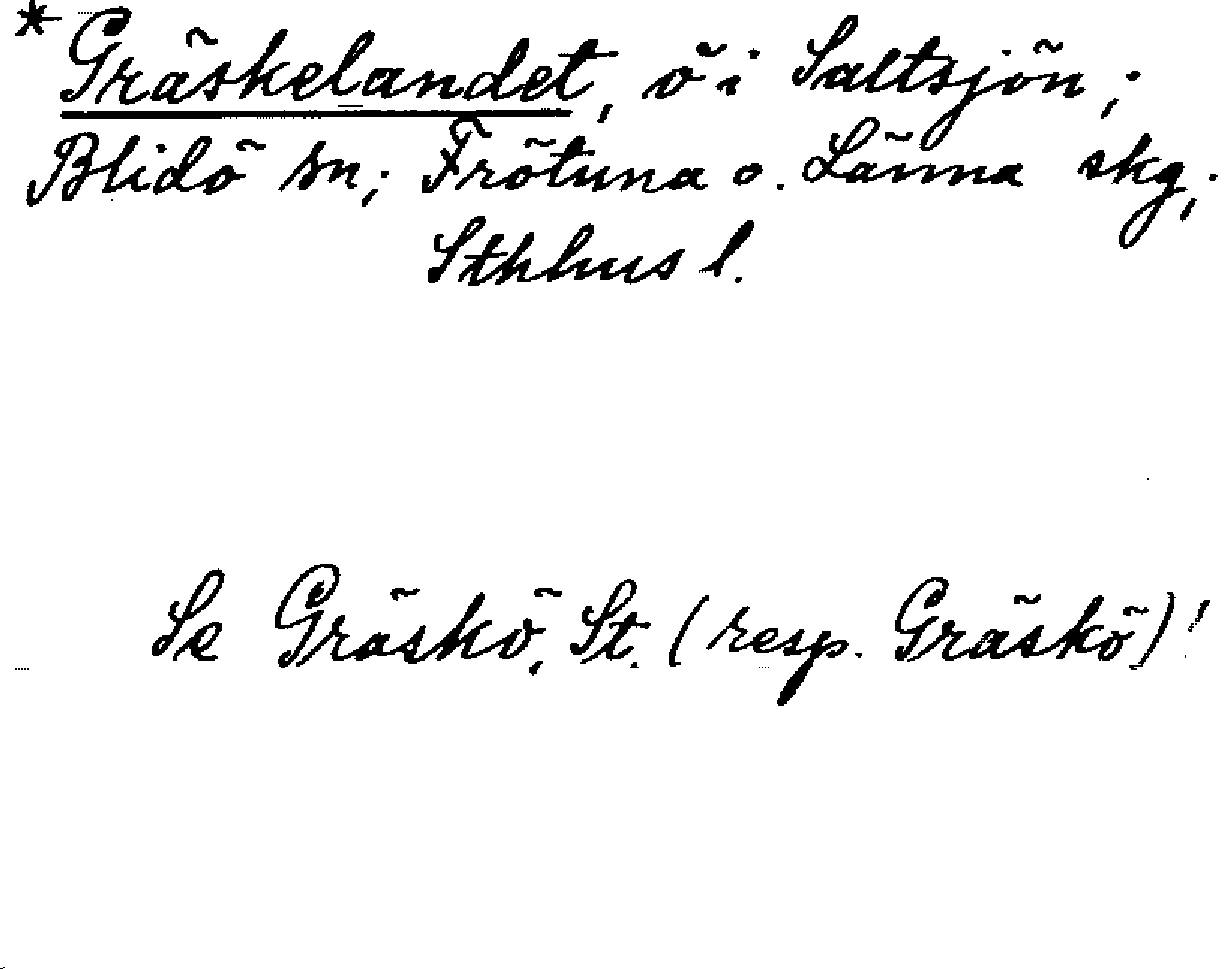 *Gräskelandet, ö i Saltsjön;
Blidö sn; Frötuna o. Länna skg;
Sthlms l.
Se Gräskö, St. (resp. Gräskö)!